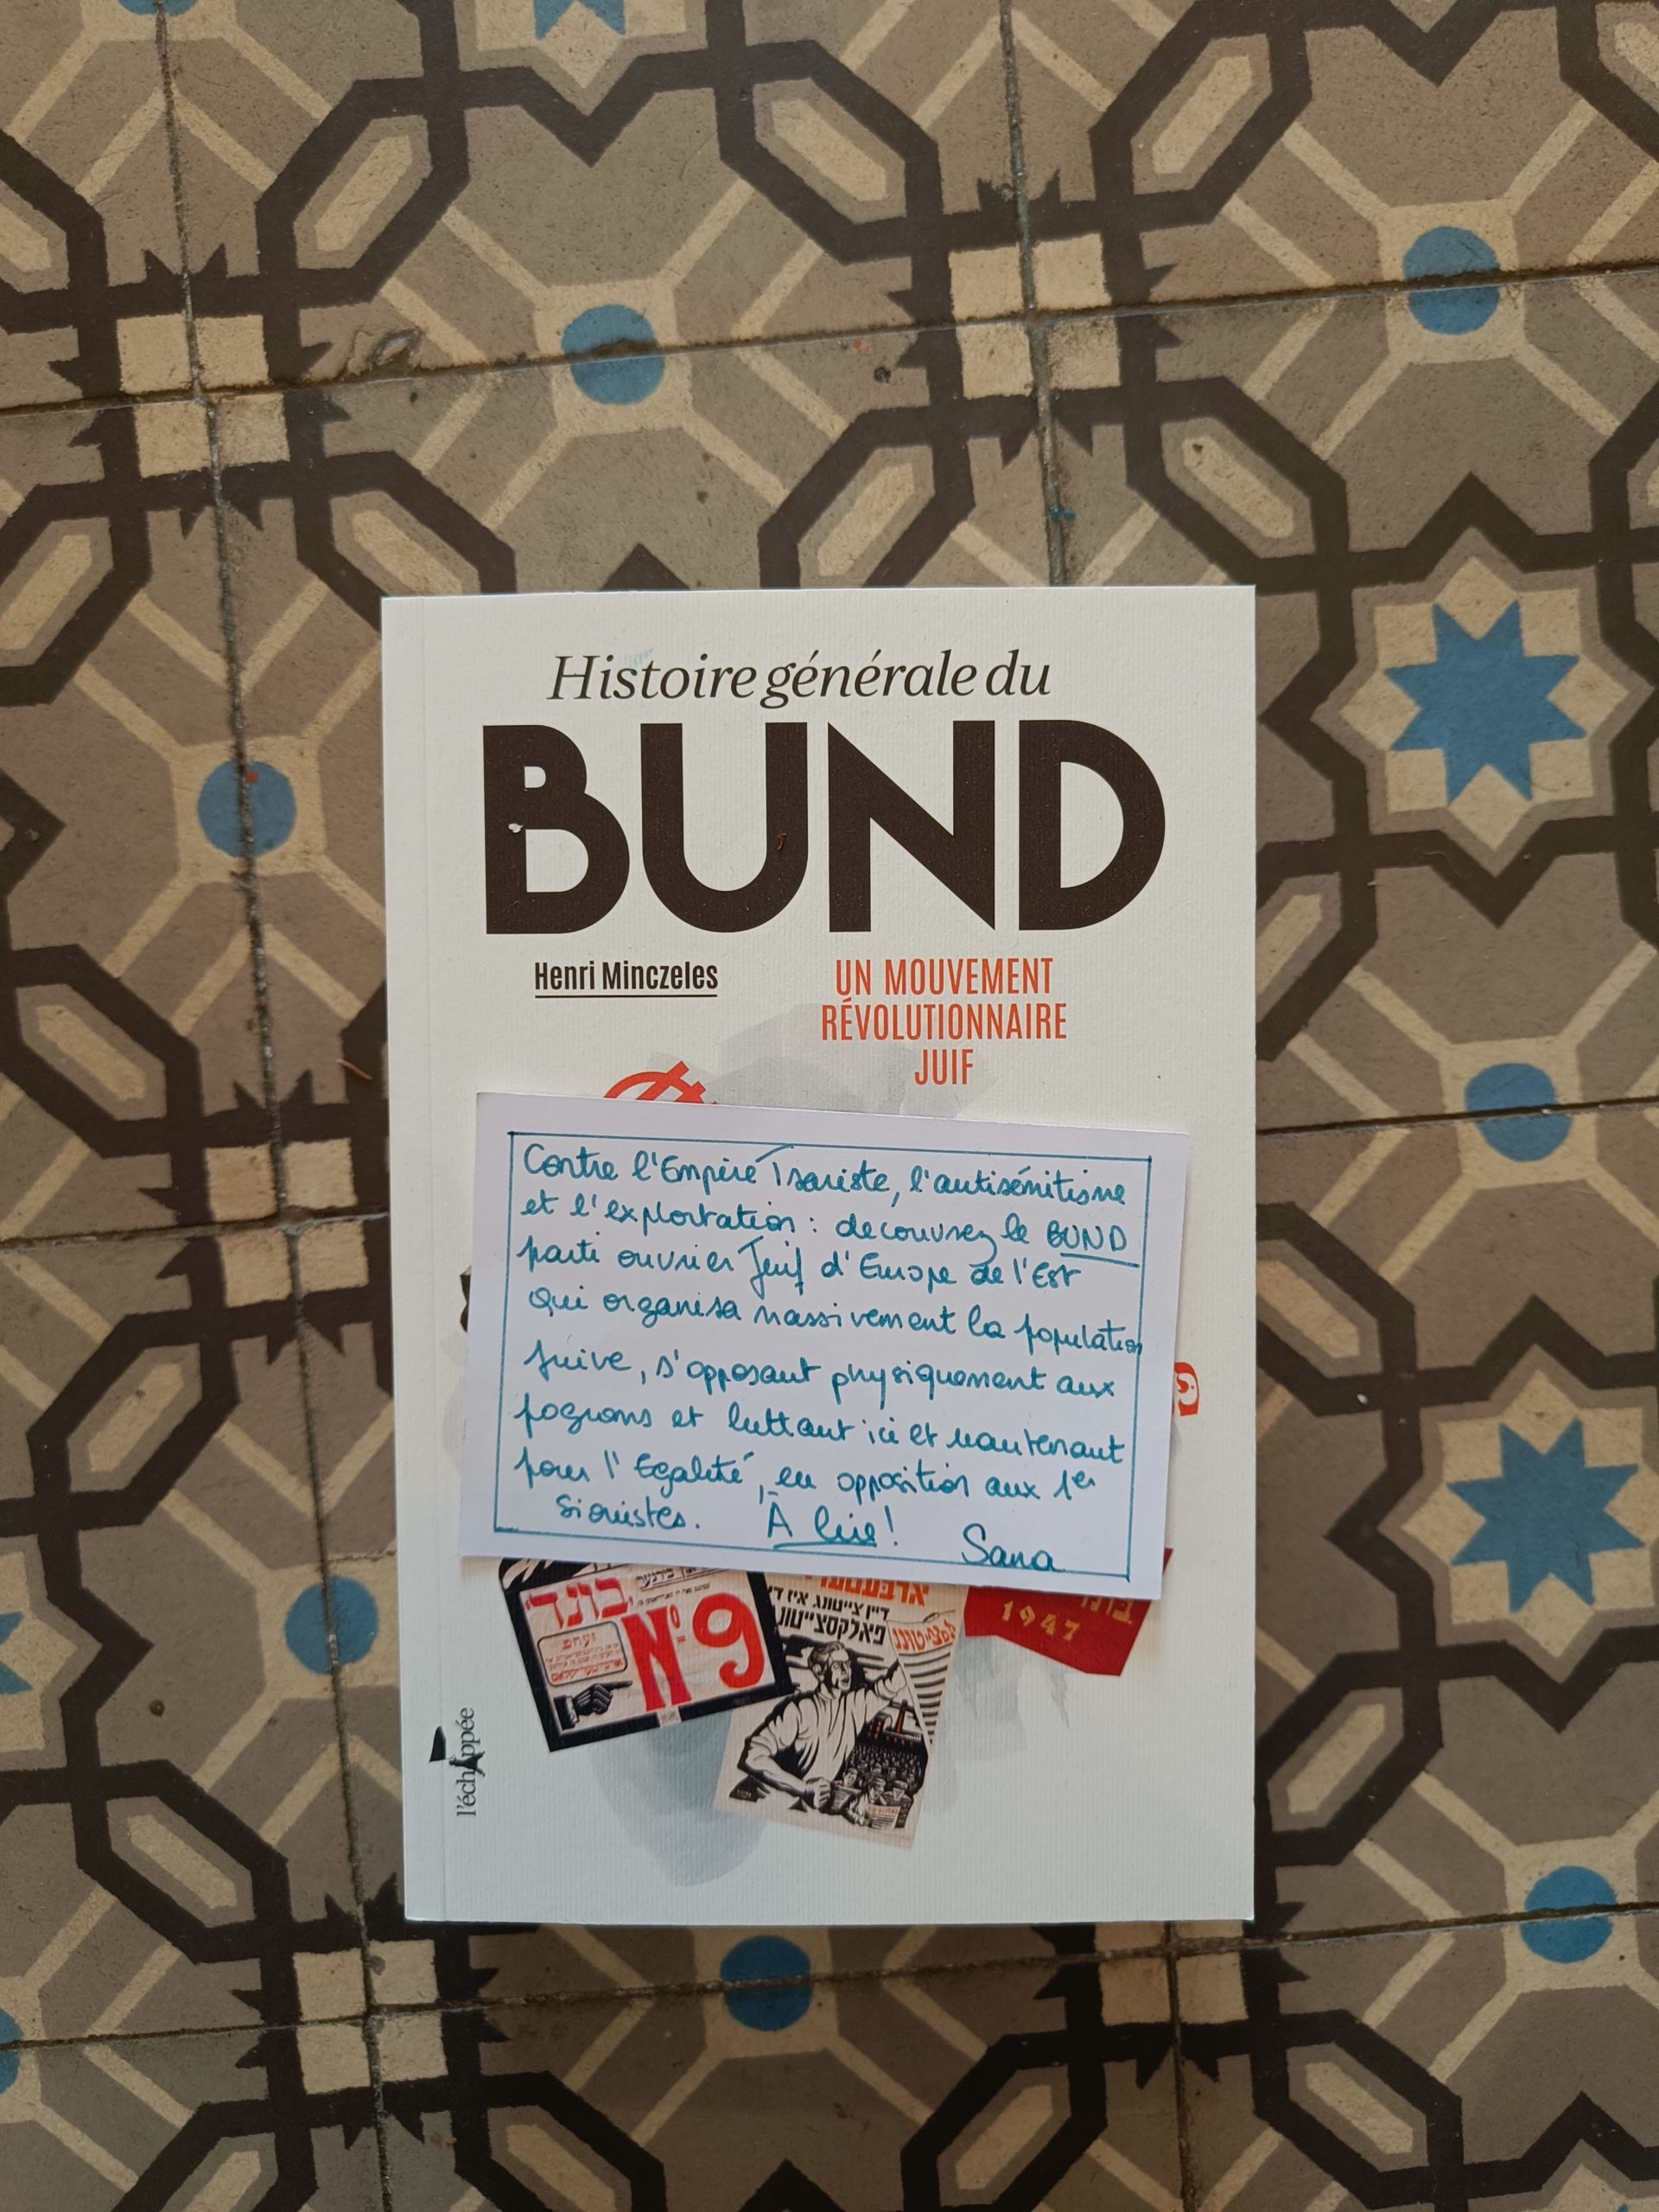 Histoire générale du
BUND
Henri Minczeles
UN MOUVEMENT
RÉVOLUTIONNAIRE
JUIF
Contre l'Empire Tsariste, l'antisémitisme
et l'exploitation : decouvrez le BUND
parti ouvrier Juif d'Europe de l'Est
qui organisa massivement la population
juive, s'opposant physiquement aux
pogroms et luttant ici et maintenant
pour l'Egalité, en opposition aux 1er
sionistes. À lire !
Sana
בונד
Nº 9
דיין צייטונג איז די
פאלקסצייטונג
1947
l'échappée